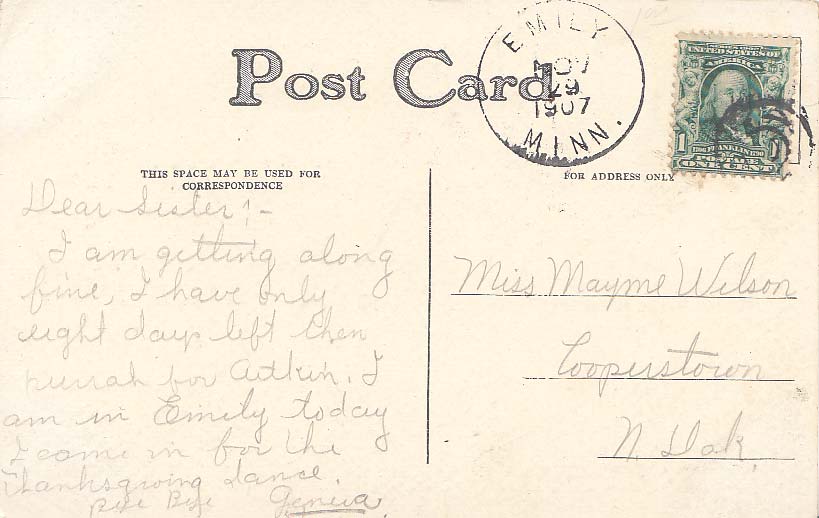 Post Card
EMILY
NOV
29
1907
MINN.
UNITED STATES OF
AMERICA
FRANKLIN
1
POSTAGE
ONE CENT
THIS SPACE MAY BE USED FOR
CORRESPONDENCE
FOR ADDRESS ONLY
Dear Sister:-
I am getting along
fine, I have only
eight days left then
hurrah for Aitkin. I
am in Emily today
I came in for the
Thanksgiving dance.
Bye Bye Geneva
Miss Mayme Wilson
Cooperstown
N. Dak.